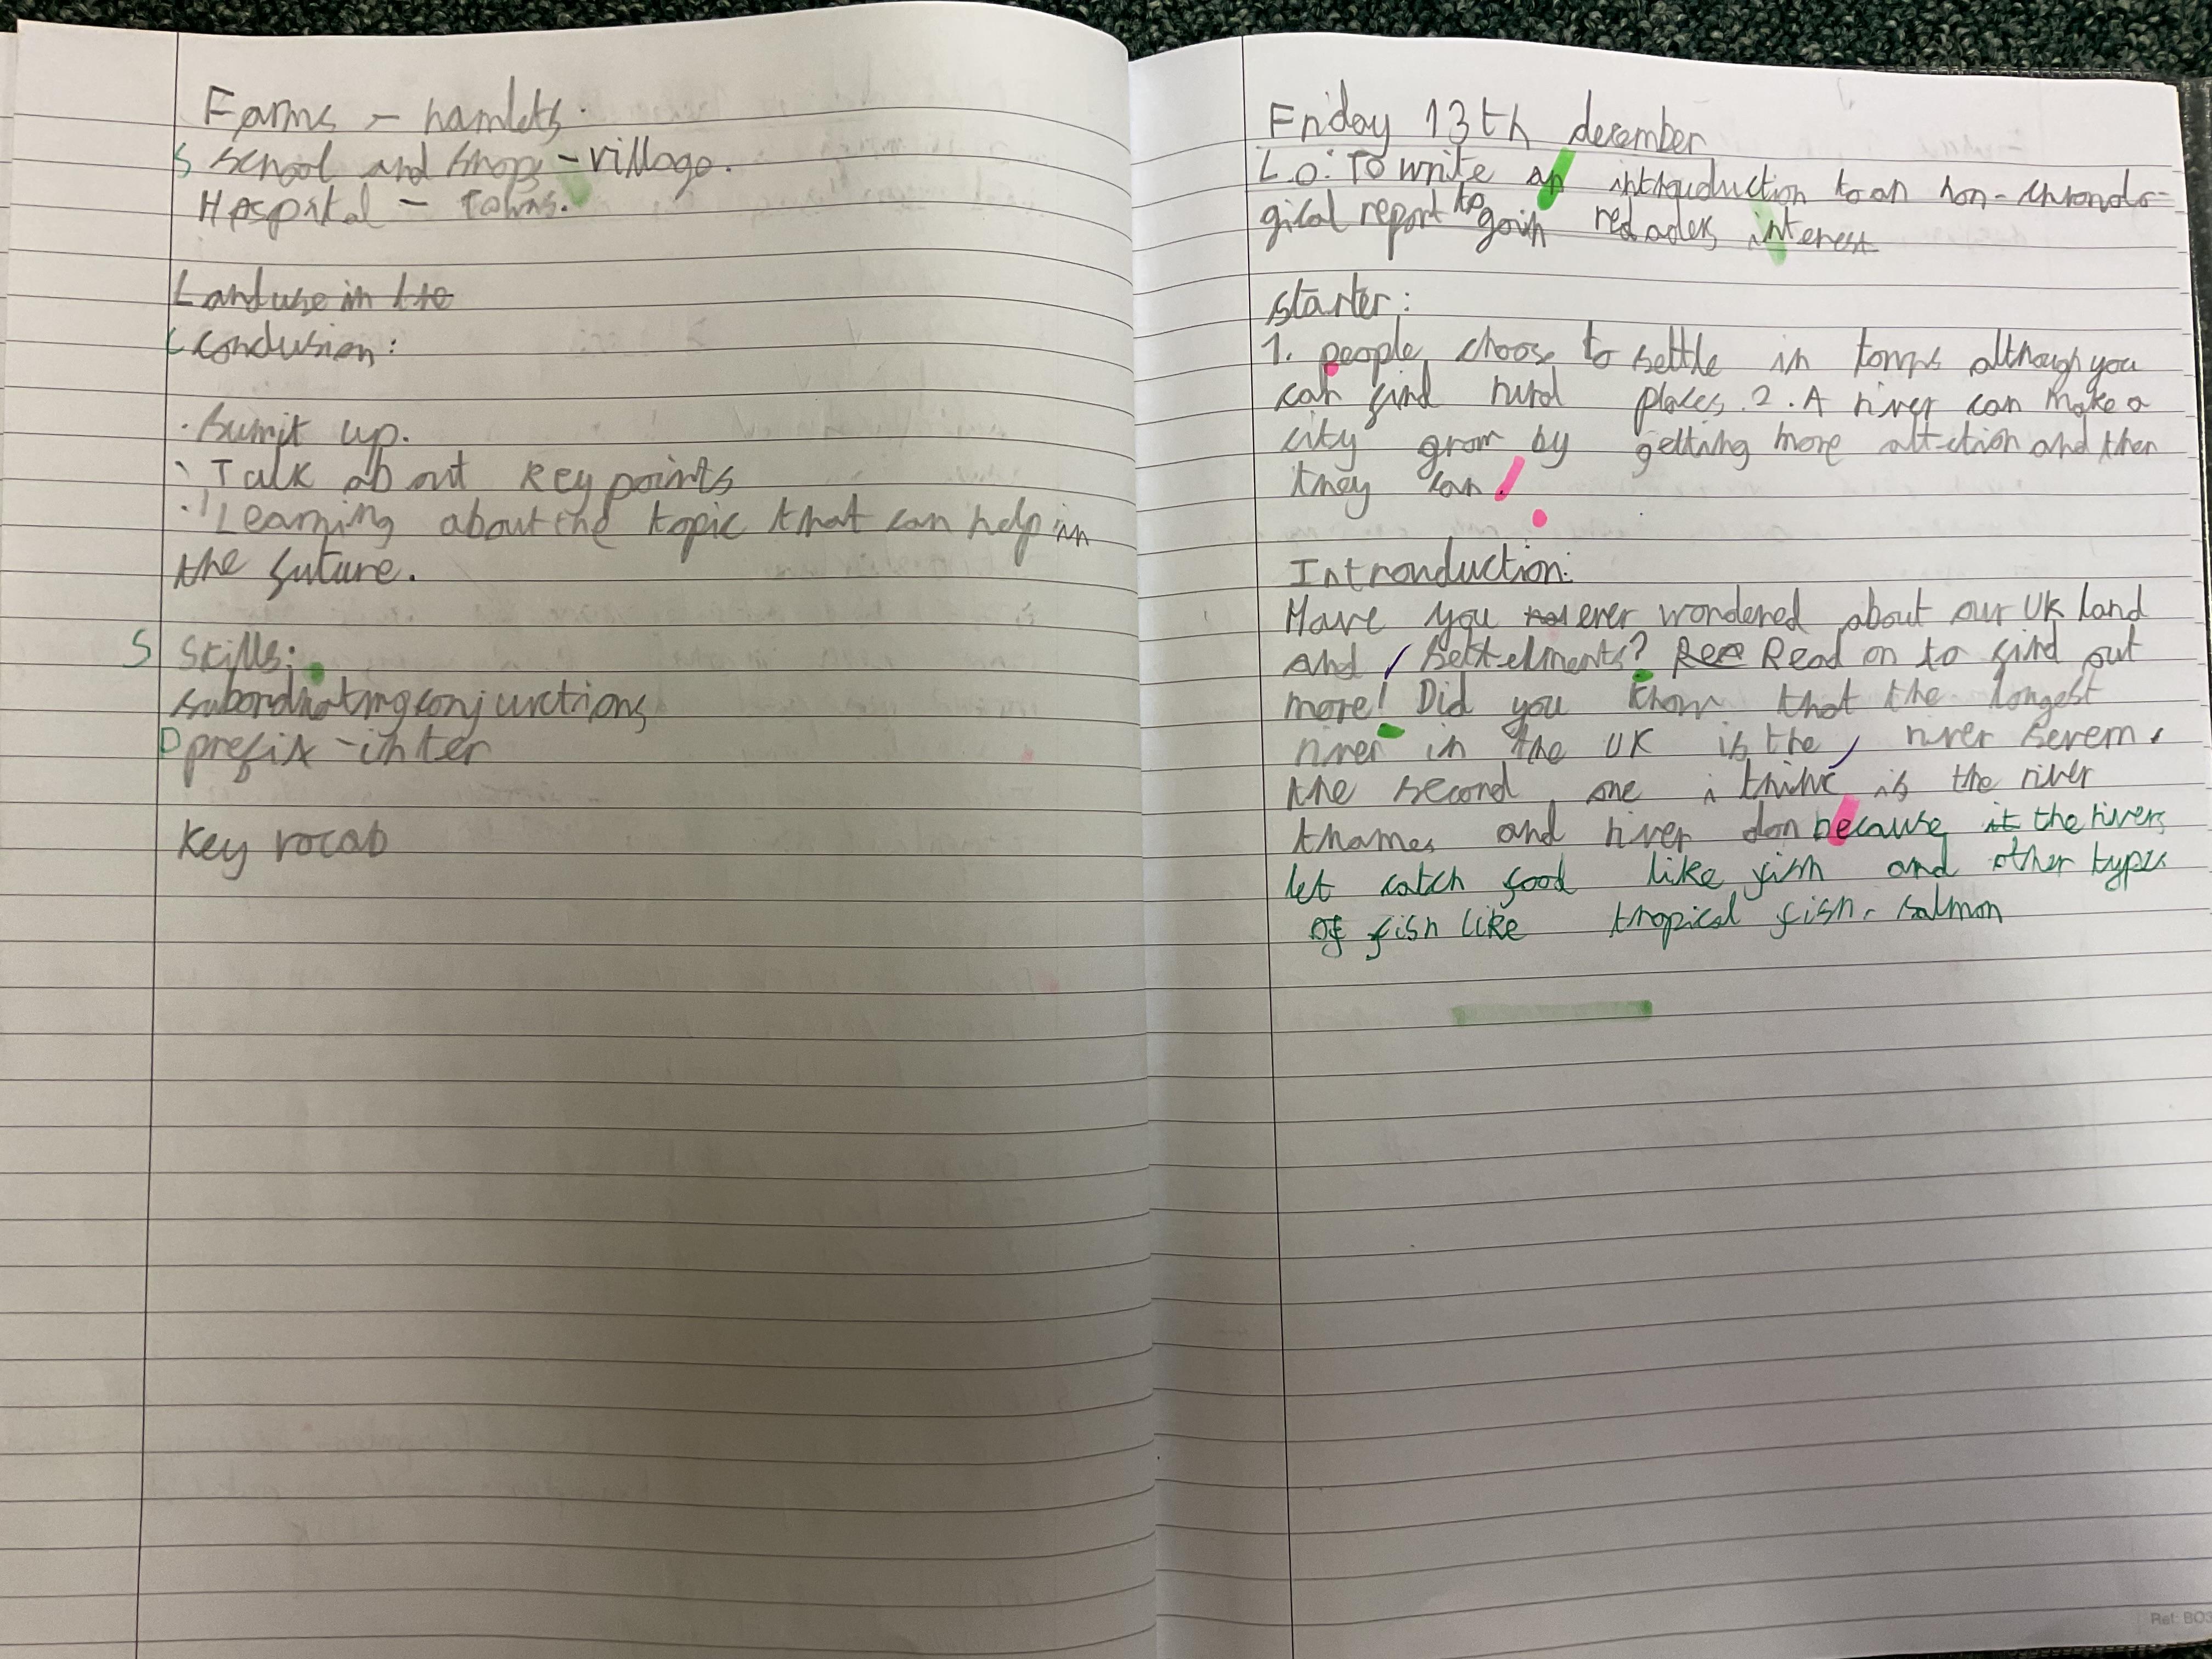 Farms - hamlets.
S School and shops - village.
Hospital - Towns.
Landuse in
C Conclusion:
· Sumit up.
· Talk about key points
· Learning about the topic that can help in
the future.
S Skills:
subordinating conjunctions
P prefix - inter
Key vocab
Friday 13th december
L.o: To write an intrauduction to an non-chronolo-
gical report to gain readers interest
starter:
1. people choose to settle in towns although you
can find rural places. 2. A river can make a
city grow by getting more and then
they can!
Intronduction:
Have you ever wondered about our UK land
and settelments? Read on to find out
more! Did you know that the longest
river in the UK is the river Serern.
the second one i think is the river
thames and river don because it the rivers
let catch food like fish and other types
of fish like tropical fish. salmon
Ref: BO3